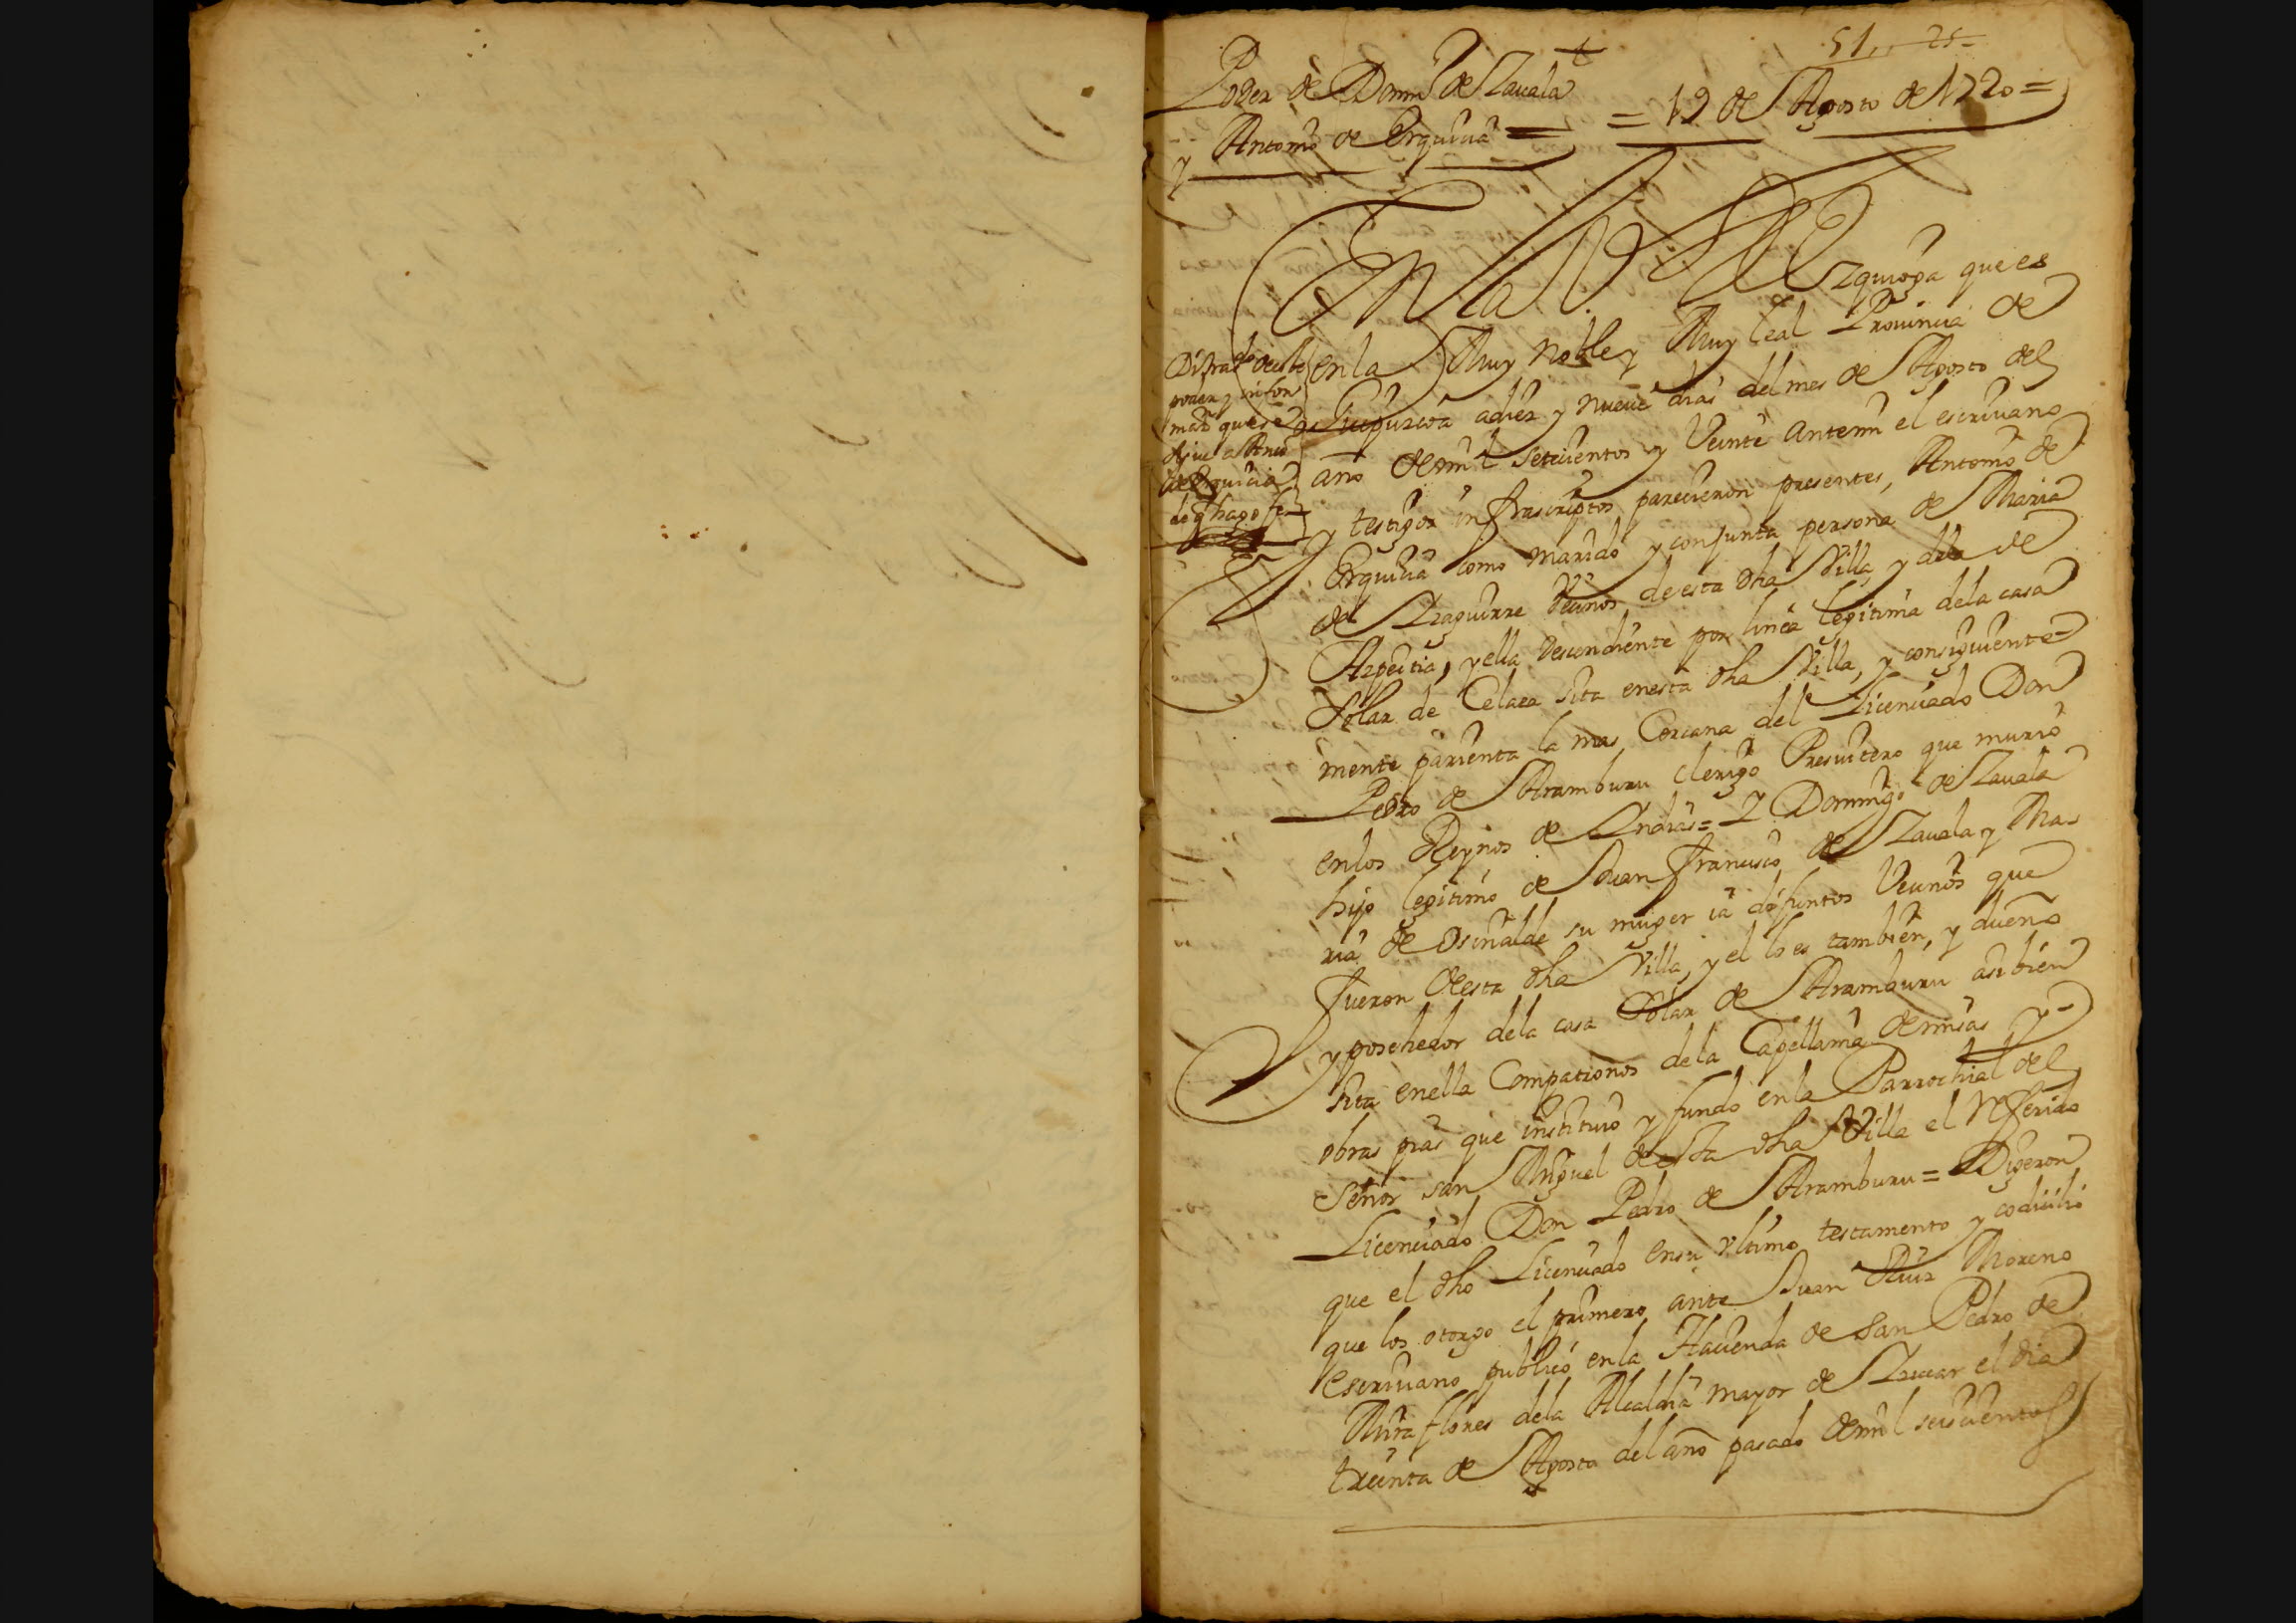 51,, 25
Poder de Domingo de Zauala
y Antonio de Erquicia =
= 19 de Agosto de 1720 =
En la Villa de Izquioga que es
Di tras.do deeste
poder y infor
maz.n que se
sigue a Anto
de Erquicia
do q hago fe
en la Muy Noble y Muy Leal Prouincia de
Guipuzcoa a diez y nueue dias del mes de Agosto del
año de mil setecientos y Veinte antemi el escriuano
y testigos infrascriptos parecieron presentes, Antonio de
Erquicia como marido y conjunta persona de Maria
de Izaguirre Vecinos de esta dha Villa, y dela de
Azpeitia, y ella descendiente por linea legitima dela casa
Solar de Celaea sita enesta dha Villa, y consiguiente=
mente parienta la mas Cercana del Licenciado Don
Pedro de Aramburu clerigo Presuitero que murio
enlos Reynos de Indias = Y Domingo de Zauala
hijo legitimo de Juan Francisco de Zauala y Ma-
ria de Osinalde su muger ia difuntos Vecinos que
fueron desta dha Villa, y el lo es tambien, y dueño
y posehedor dela casa Solar de Aramburu asi bien
sita enella Compatronos dela Capellania de misas y
obras pias que instituio y fundo enla Parrochial del
Señor san Miguel desta dha Villa el referido
Licenciado Don Pedro de Aramburu = Digeron
que el dho Licenciado ensu vltimo testamento y codicilio
que los otorgo el primero ante Juan Ruiz Moreno
escriuano publico enla Hacienda de San Pedro de
Miraflores dela Alcaldia mayor de Izucar el dia
treinta de Agosto del año pasado de mil seiscientos